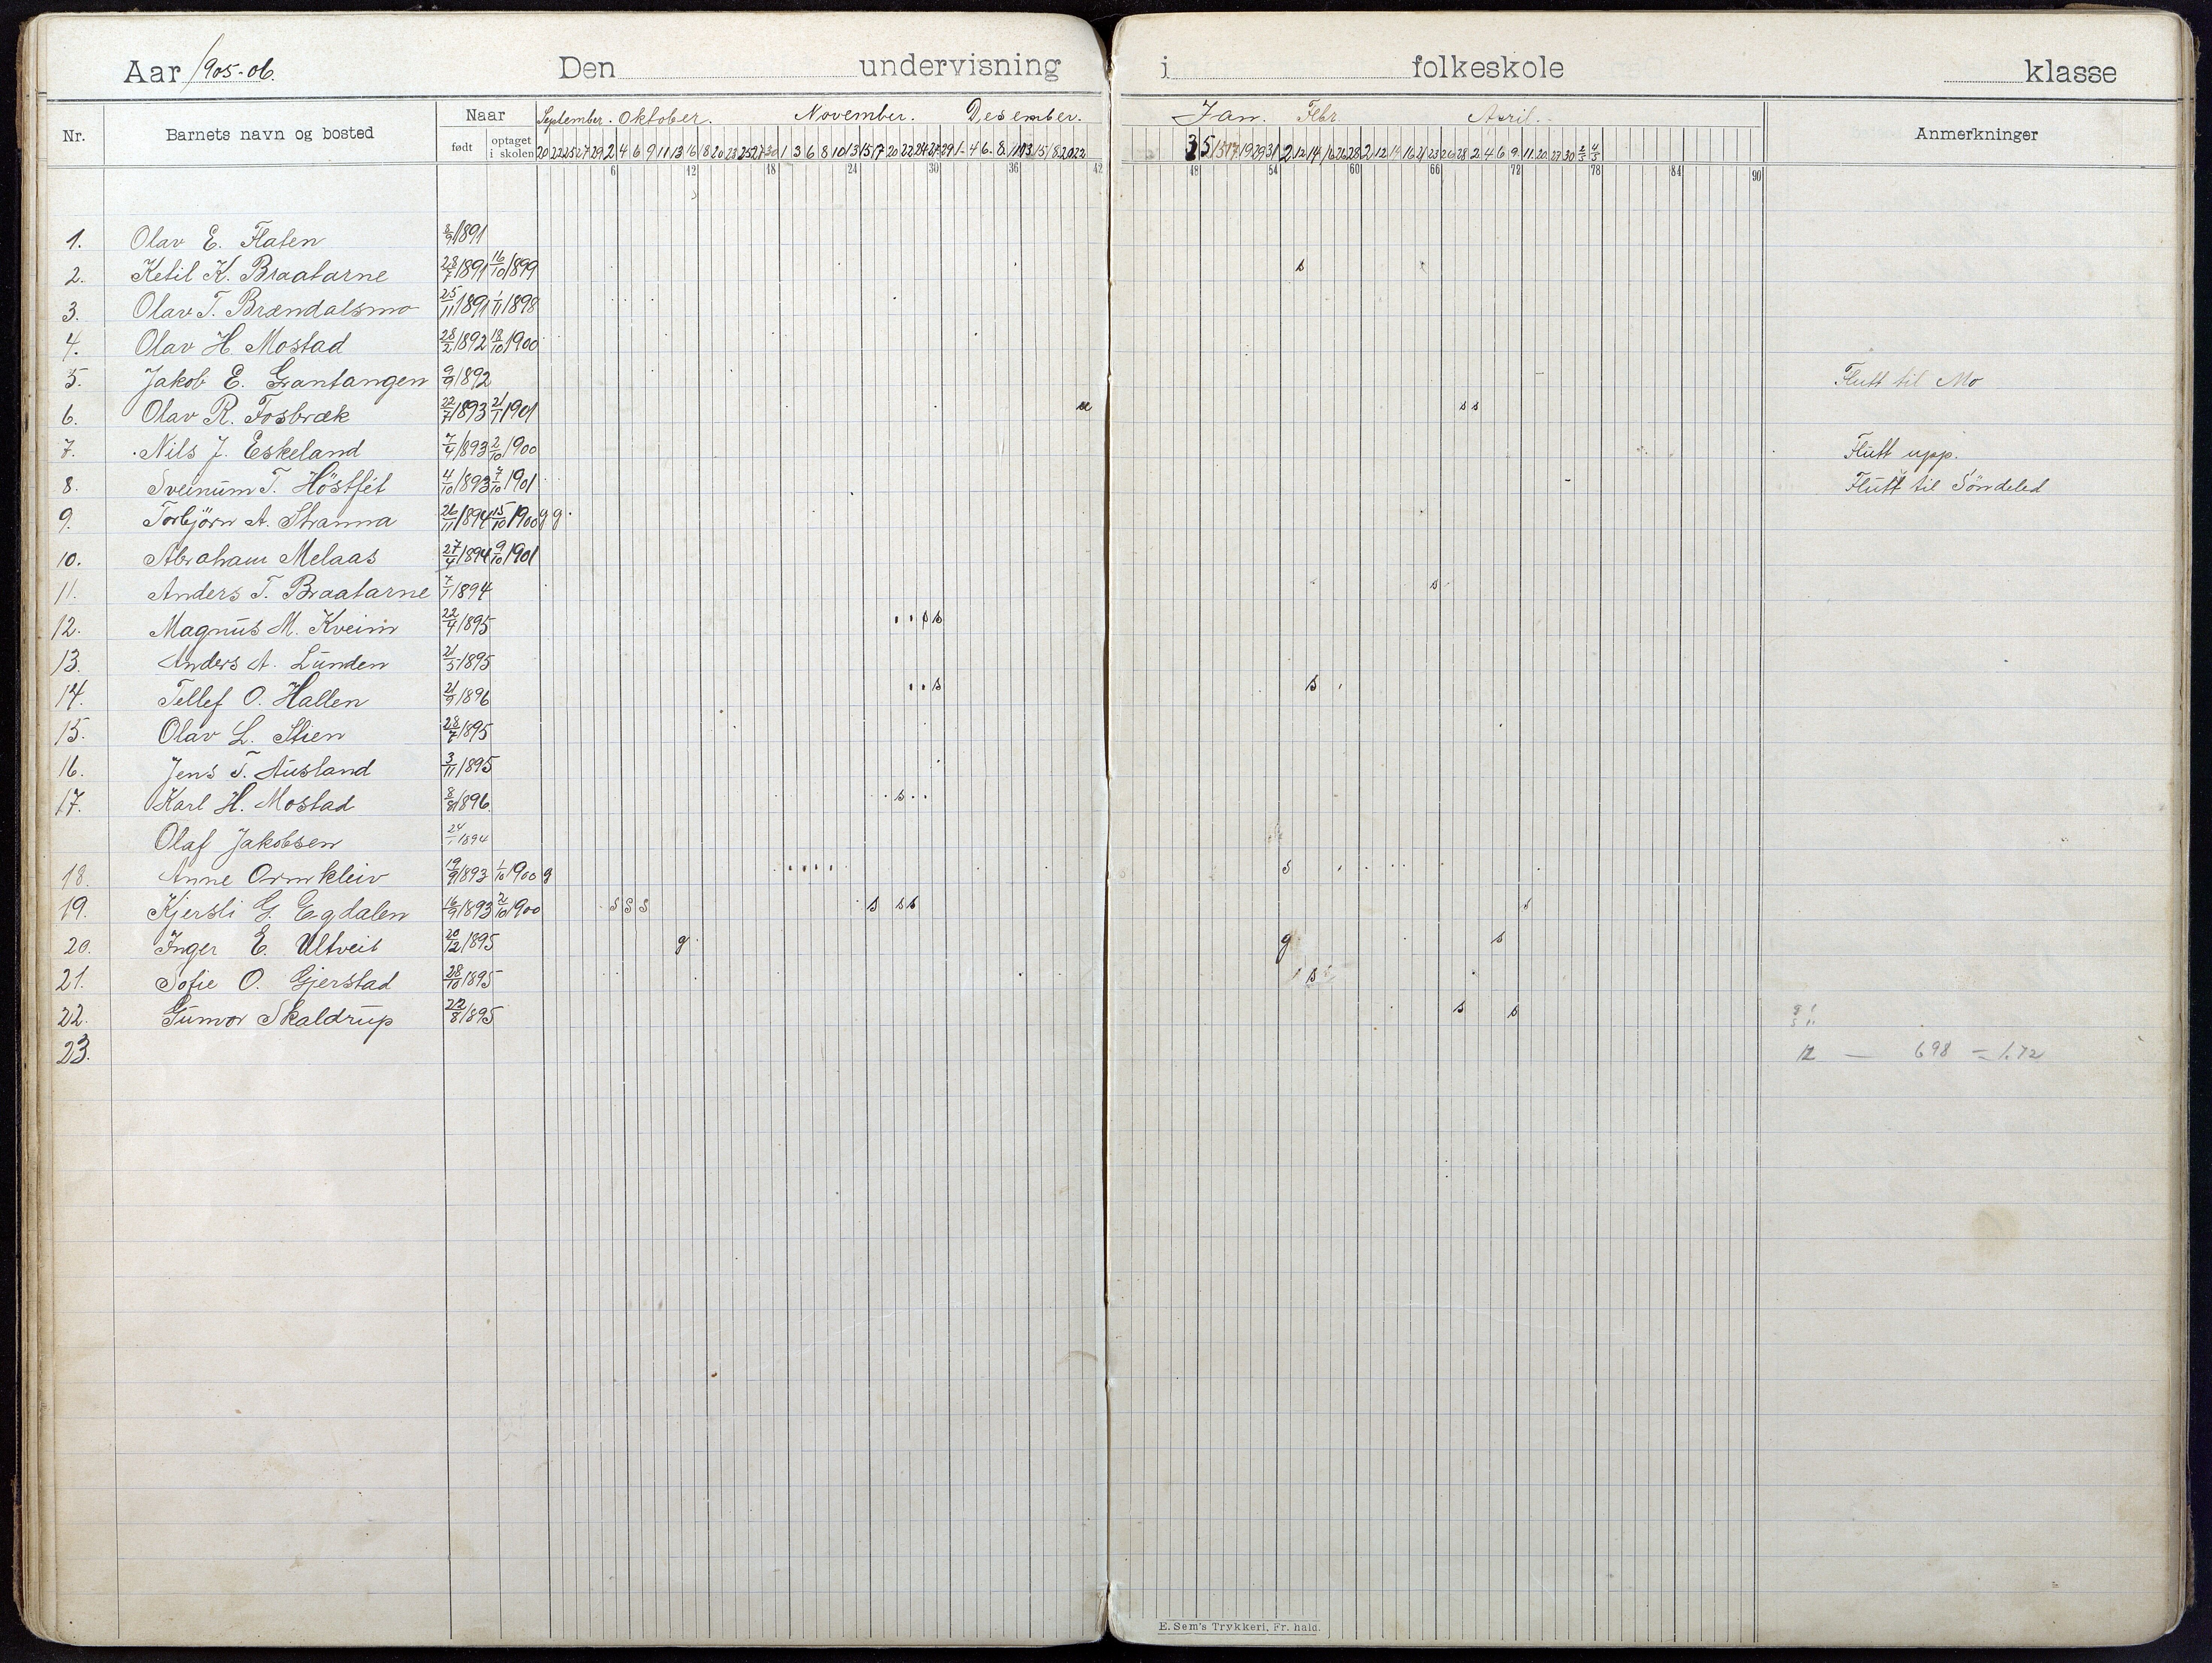 Aar 1905-06. Den undervisning i folkeskole klasse
Nr. Barnets navn og bosted Naar September. Oktober. November. Desember. Jan. Febr. April. Anmerkninger
født optaget i skolen
6 12 18 24 30 36 42 48 54 60 66 72 78 84 90
1. Olav E. Flaten 8/9 1891
2. Ketil K. Braatarne 28/7 1891 16/10 1899 s
3. Olav T. Brændalsmo 25/11 1891 1/11 1898
4. Olav H. Mostad 28/2 1892 18/10 1900
5. Jakob E. Grantangen 9/9 1892 Flutt til Mo
6. Olav R. Fosbræk 22/7 1893 21/1 1901 s s
7. Nils J. Eskeland 7/4 1893 2/10 1900 Flutt upp.
8. Sveinum T. Höstfét 4/10 1893 7/10 1901 Flutt til Söndeled
9. Torbjörn A. Stranna 26/11 1894 15/10 1900 g g
10. Abraham Melaas 27/4 1894 9/10 1901
11. Anders T. Braatarne 7/1 1894 s
12. Magnus M. Kveim 22/4 1895 s s
13. Anders A. Lunden 21/5 1895
14. Tellef O. Hallen 21/9 1896 s s
15. Olav L. Stien 28/7 1895
16. Jens T. Ausland 3/11 1895
17. Karl H. Mostad 8/8 1896 s
Olaf Jakobsen 24/1 1894
18. Anne Ormkleiv 19/9 1893 1/10 1900 g s
19. Kjersti G. Egdalen 16/9 1893 2/10 1900 s s s s s s s
20. Inger E. Ultveit 20/12 1895 g g s
21. Sofie O. Gjerstad 28/10 1895 s
22. Gumor Skaldrup 22/8 1895 s s
23.
12 — 698 = 1.72
E. Sem's Trykkeri, Fr. hald.